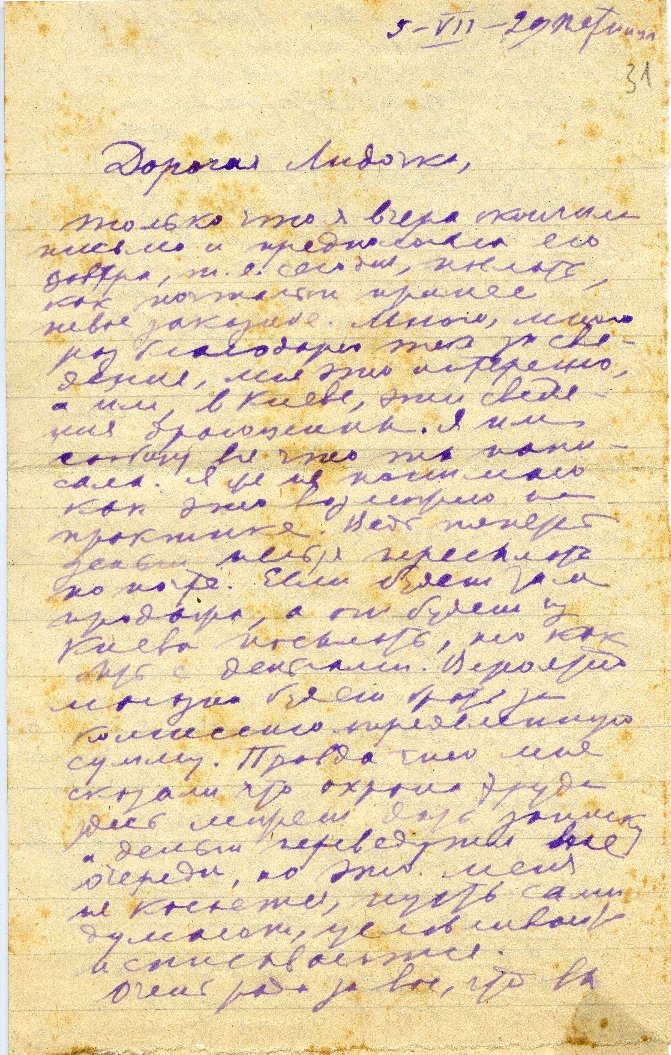 5-VII-29
31
Дорогая Лидочка,
только что я вчера окончила
письмо и предполагала его
завтра, т.е. сегодня, послать,
как почтальон принес
новое заказное. Много, много
раз благодарю тебя за све-
дения, мне это интересно,
а им, в Киеве, эти сведе-
ния драгоценны. Я им
сообщу все что ты напи-
сала. Я же не понимаю
как это возможно на
практике. Ведь теперь
деньги нельзя пересылать
по почте. Если будет там
продажа, а они будут из
Киева посылать, то как
быть с деньгами. Вероятно
можно будет брать за
комиссию определенную
сумму. Правда что мне
сказали что охрана труда
здесь может дать записку
и деньги переведут вне
очереди, но это меня
не касается, пусть сами
думают, условливаются
и списываются.
Очень рада за вас, что вы